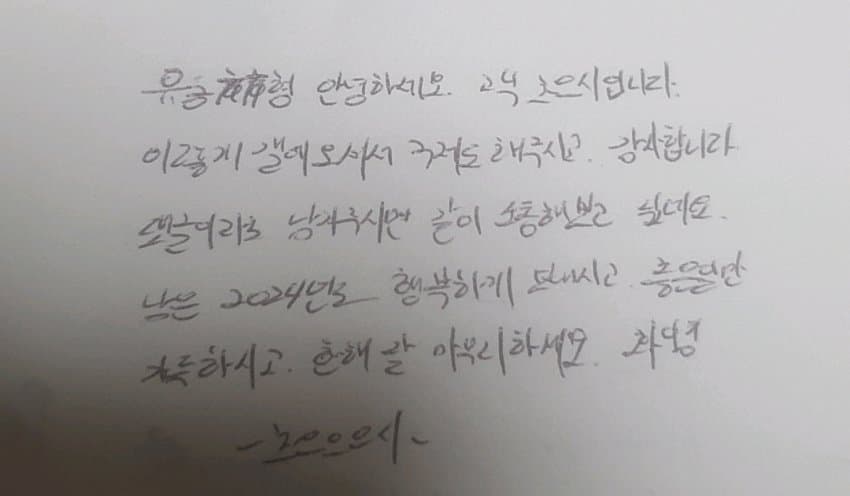 안녕하세요. 고닉 초으시입니다.
이렇게 갤에 오셔서 구저도 해주시고. 감사합니다
댓글이라도 남겨주시면 같이 소통해보고 싶네요.
남은 2024년도 행복하게 보내시고. 좋은일만
가득하시고. 한해 잘 마무리하세요. 화팅
-초으으으시-